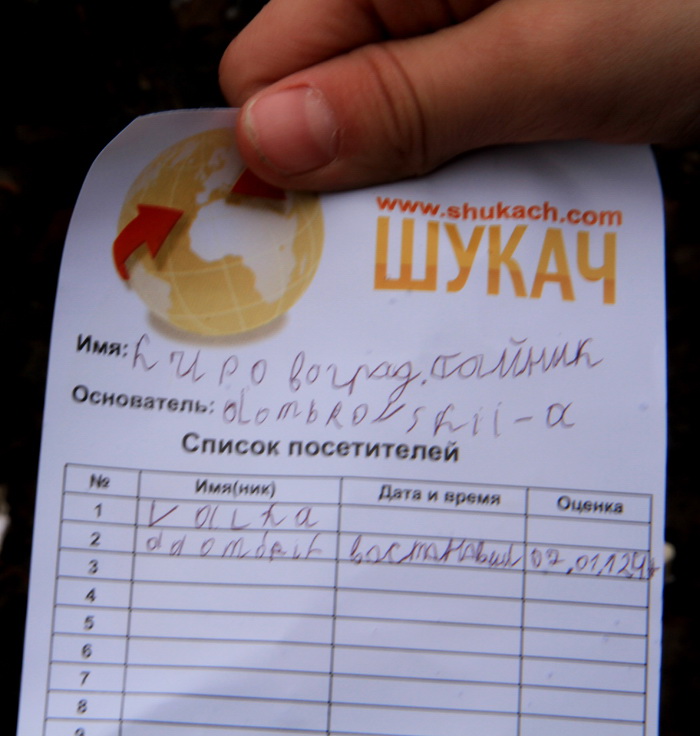 www.shukach.com
ШУКАЧ
Имя: Кировоград. тайник
Основатель: dombrovskii-a
Список посетителей
№ Имя(ник) Дата и время Оценка
1
2 07.01.12
3
4
5
6
7
8
9